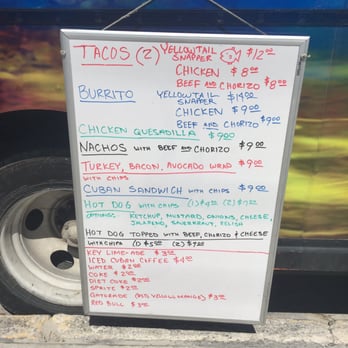 TACOS (2) YELLOWTAIL SNAPPER $12.00
CHICKEN $8.00
BEEF AND CHORIZO $8.00
BURRITO YELLOWTAIL SNAPPER $14.00
CHICKEN $9.00
BEEF AND CHORIZO $9.00
CHICKEN QUESADILLA $9.00
NACHOS WITH BEEF AND CHORIZO $9.00
TURKEY, BACON, AVOCADO WRAP $9.00
WITH CHIPS
CUBAN SANDWICH WITH CHIPS $9.00
HOT DOG WITH CHIPS (1) $4.00 (2) $7.00
OPTIONS: KETCHUP, MUSTARD, ONIONS, CHEESE,
JALAPENO, SAUERKRAUT, RELISH
HOT DOG TOPPED WITH BEEF, CHORIZO & CHEESE
WITH CHIPS (1) $5.00 (2) $7.00
KEY LIME-ADE $3.00
ICED CUBAN COFFEE $4.00
WATER $2.00
COKE $2.00
DIET COKE $2.00
SPRITE $2.00
GATORADE (RED, YELLOW, ORANGE) $3.00
RED BULL $3.00